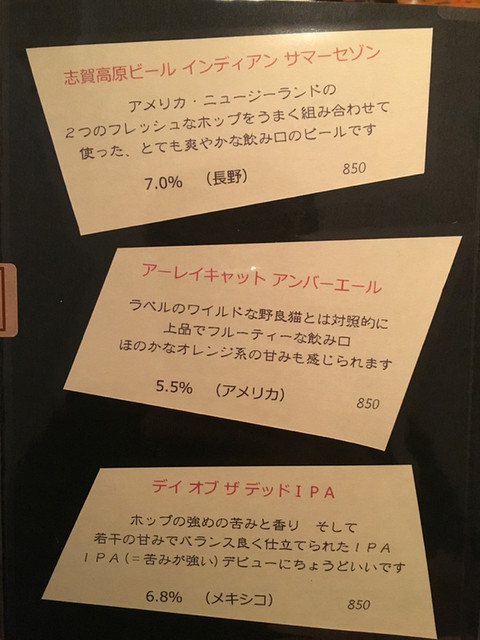 志賀高原ビール インディアン サマーセゾン
アメリカ・ニュージーランドの
２つのフレッシュなホップをうまく組み合わせて
使った、とても爽やかな飲み口のビールです
7.0% （長野） 850
アーレイキャット アンバーエール
ラベルのワイルドな野良猫とは対照的に
上品でフルーティーな飲み口
ほのかなオレンジ系の甘みも感じられます
5.5% （アメリカ） 850
デイ オブ ザ デッドＩＰＡ
ホップの強めの苦みと香り そして
若干の甘みでバランス良く仕立てられたＩＰＡ
ＩＰＡ（＝苦みが強い）デビューにちょうどいいです
6.8% （メキシコ） 850